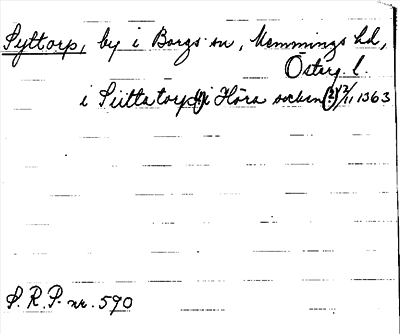 Syttorp, by i Borgs sn, Memmings hd,
Österg. l.
i Siittatorp(!) i Höra socken (?) 12/11 1363
S. R. P. nr. 590